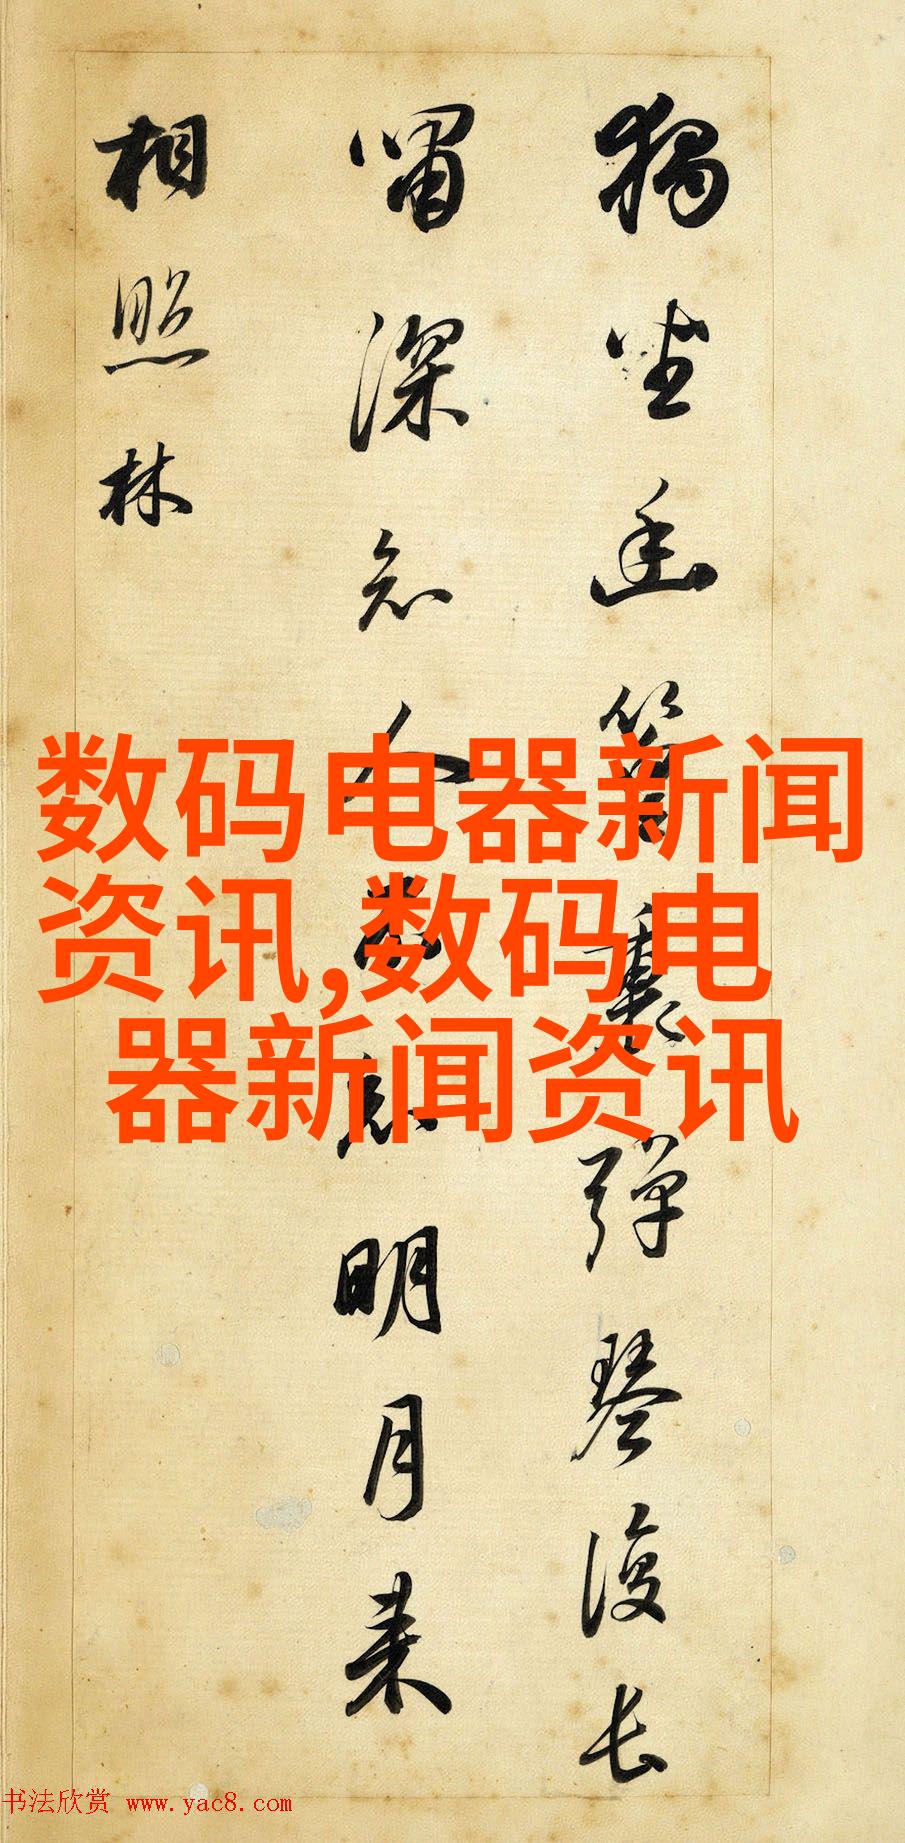 獨坐幽篁裏弹琴復长
嘯深人明月来
相照林
数码电器新闻
资讯,数码电
器新闻资讯
书法欣赏 www.yac8.com